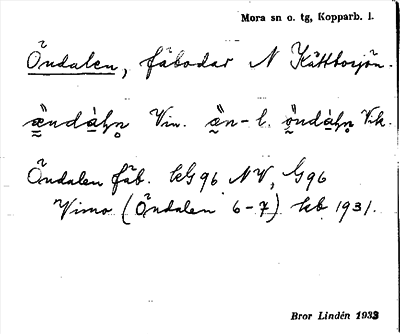 Mora sn o. tg, Kopparb. l.
Öndalen, fäbodar N Kättbosjön.
ä̤ndàḥn̥ Vin. ä̤n- l. ö̤ndàḥn̥ Vik.
Öndalen fäb. kG 96 NV, G 96
Vimo (Öndalen 6-7) kb 1931.
Bror Lindén 1933